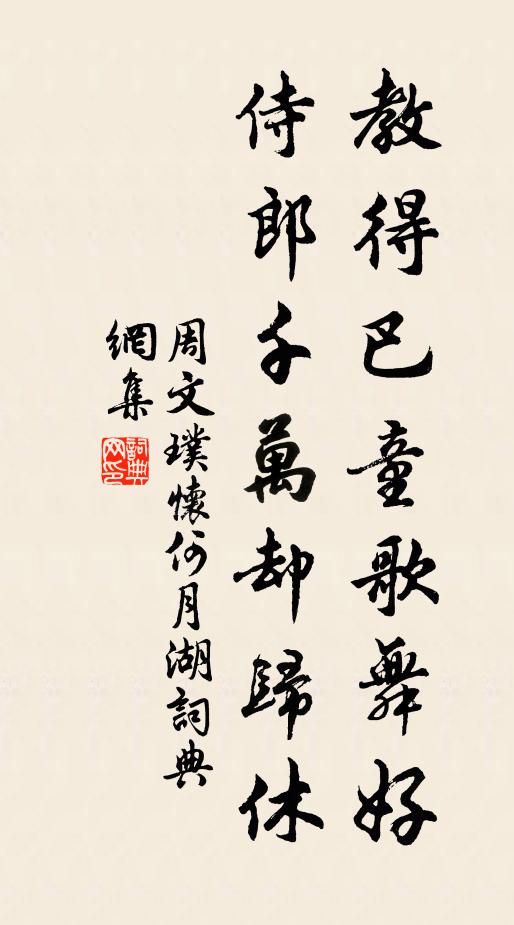 教得巴童歌舞好
侍郎千萬却歸休
周文璞懷何月湖詞典
網集
詞典
网集